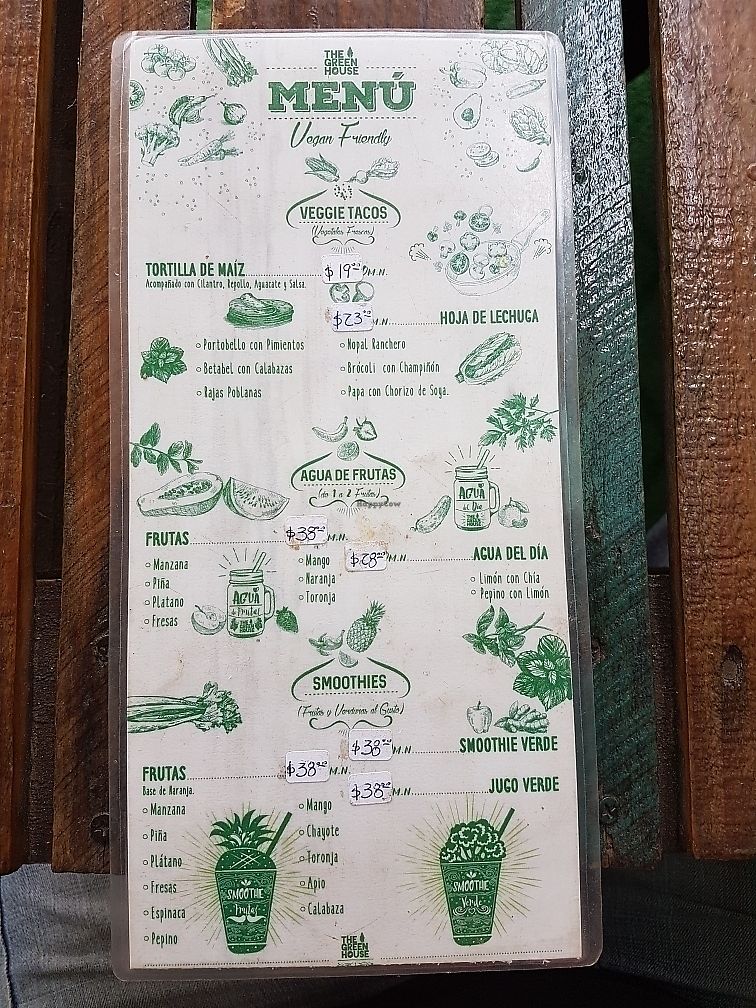 THE
GREEN
HOUSE
MENÚ
Vegan Friendly
VEGGIE TACOS
(Vegetales Frescos)
TORTILLA DE MAÍZ $19.00 M.N.
Acompañado con Cilantro, Repollo, Aguacate y Salsa.
$23.00 M.N. HOJA DE LECHUGA
Portobello con Pimientos
Betabel con Calabazas
Rajas Poblanas
Nopal Ranchero
Brócoli con Champiñón
Papa con Chorizo de Soya.
AGUA DE FRUTAS
(de 1 a 2 Frutas)
HappyCow
AGUA
del Día
THE
GREEN
HOUSE
FRUTAS $38.00 M.N.
Manzana
Piña
Platano
Fresas
Mango
Naranja
Toronja
AGUA
de Frutas
THE
GREEN
HOUSE
$28.00 M.N. AGUA DEL DÍA
Limón con Chía
Pepino con Limón
SMOOTHIES
(Frutas y Verduras al Gusto)
$38.00 M.N. SMOOTHIE VERDE
FRUTAS $38.00 M.N.
Base de Naranja.
$38.00 M.N. JUGO VERDE
Manzana
Piña
Plátano
Fresas
Espinaca
Pepino
Mango
Chayote
Toronja
Apio
Calabaza
SMOOTHIE
Frutas
SMOOTHIE
Verde
THE
GREEN
HOUSE